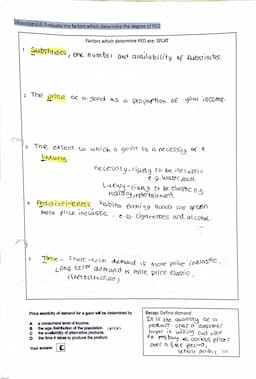 Objective 2.6.3 Explain the factors which determine the degree of PED
Factors which determine PED are: SPLAT
1 Substitutes, the number and availability of substitutes.
2 The price of a good as a proportion of your income.
3 The extent to which a good is a necessity or a
luxury
necessity - likely to be inelastic
e.g. water, food.
Luxury - likely to be elastic e.g.
holiday, entertainment
4 Addictiveness habits forming goods are often
more price inelastic. e.g. cigarettes and alcohol.
5 Time - Short-term demand is more price inelastic.
Long term demand is more price elastic.
Price elasticity of demand for a good will be determined by
A a consumers level of income.
B the age distribution of the population.
C the availability of alternative products.
D the time it takes to produce the product.
Your answer C
Recap: Define demand
It is the quantity of a
product that a customer
buyer is willing and able
to buy at various prices
over a time period,
ceteris paribus